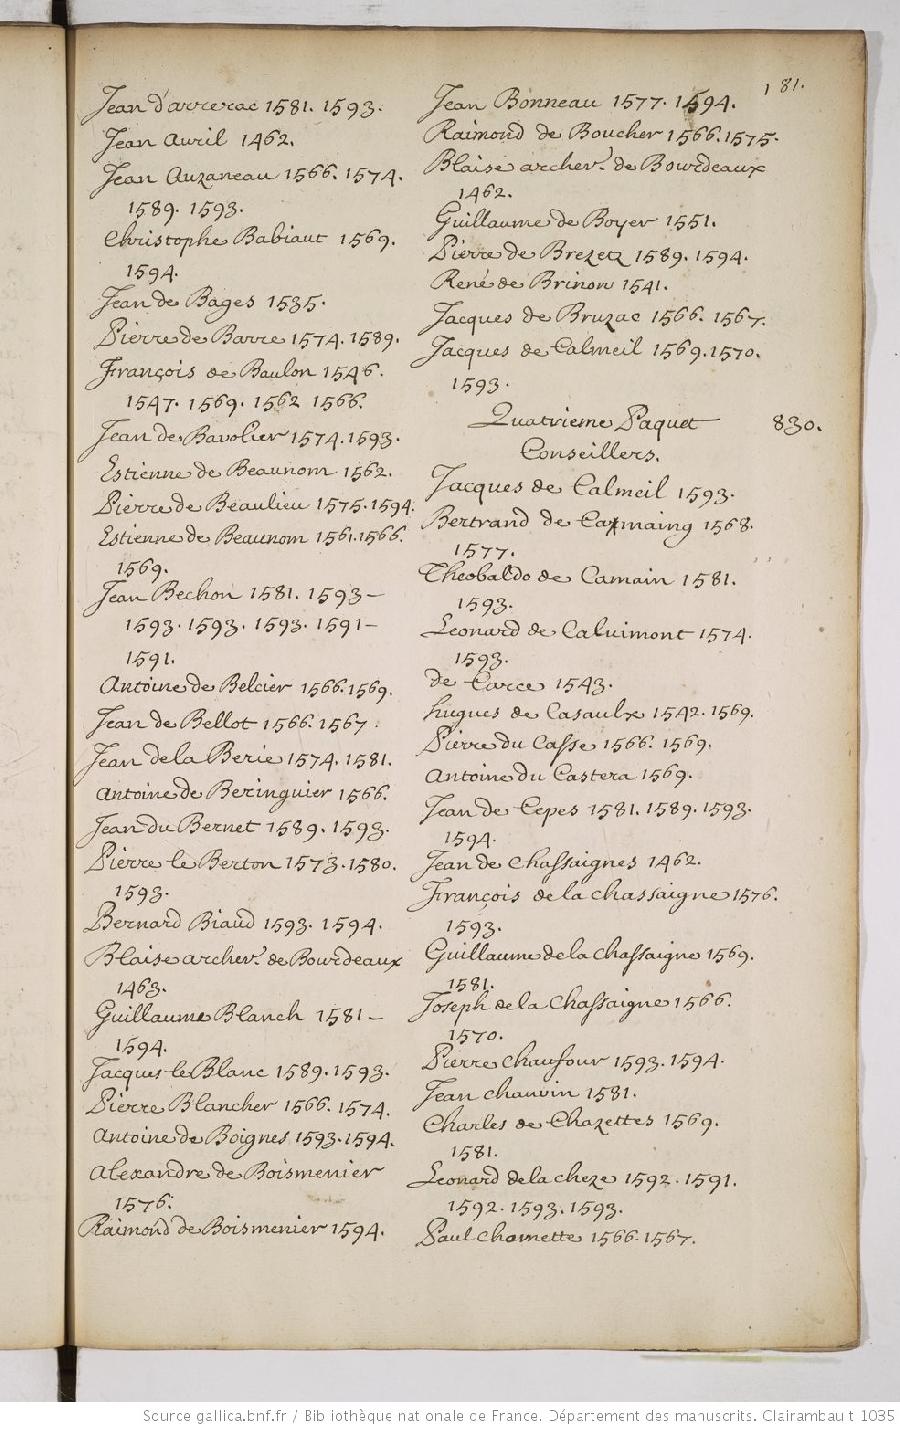 181.
Jean d'arrerac 1581. 1593.
Jean Avril 1462.
Jean Auzaneau 1566. 1574.
1589. 1593.
Christophe Babiaut 1569.
1594.
Jean de Bages 1535.
Pierre de Barre 1574. 1589.
François de Baulon 1546.
1547. 1569. 1562 1566.
Jean de Bavolier 1574. 1593.
Estienne de Beaunom 1562.
Pierre de Beaulieu 1575. 1594.
Estienne de Beaunom 1561. 1566.
1569.
Jean Bechon 1581. 1593 —
1593. 1593. 1593. 1591 —
1591.
Antoine de Belcier 1566. 1569.
Jean de Bellot 1566. 1567.
Jean de la Berie 1574. 1581.
Antoine de Beringuier 1566.
Jean du Bernet 1589. 1593.
Pierre le Berton 1573. 1580.
1593.
Bernard Biaud 1593. 1594.
Blaise archev.^ de Bourdeaux
1463.
Guillaume Blanch 1581 —
1594.
Jacques le Blanc 1589. 1593.
Pierre Blancher 1566. 1574.
Antoine de Boignes 1593. 1594.
Alexandre de Boismenier
1576.
Raimond de Boismenier 1594.
Jean Bonneau 1577. 1594.
Raimond de Boucher 1566. 1575.
Blaise archev.^ de Bourdeaux
1462.
Guillaume de Boyer 1551.
Pierre de Brezetz 1589. 1594.
René de Brinon 1541.
Jacques de Bruzac 1566. 1567.
Jacques de Calmeil 1569. 1570.
1593.
Quatrieme Paquet 830.
Conseillers.
Jacques de Calmeil 1593.
Bertrand de Carmaing 1568.
1577.
Theobaldo de Camain 1581.
1593.
Leonard de Calvimont 1574.
1593.
de Carce 1543.
hugues de Casaulx 1542. 1569.
Pierre du Casse 1566. 1569.
Antoine du Castera 1569.
Jean de Cepes 1581. 1589. 1593.
1594.
Jean de Chassaignes 1462.
François de la chassaigne 1576.
1593.
Guillaume de la chassaigne 1569.
1581.
Joseph de la Chassaigne 1566.
1570.
Pierre Chaufour 1593. 1594.
Jean chauvin 1581.
Charles de Chazettes 1569.
1581.
Leonard de la cheze 1592. 1591.
1592. 1593. 1593.
Paul chamette 1566. 1567.
Source gallica.bnf.fr / Bibliothèque nationale de France. Département des manuscrits. Clairambault 1035